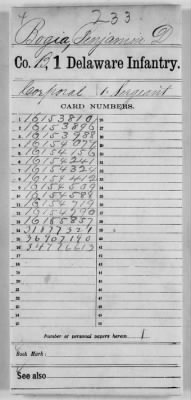 233
Bogia, Benjamin D
Co. B, 1 Delaware Infantry.
Corporal & Sergeant
CARD NUMBERS.
1 16153810 26
2 16153896 27
3 16153988 28
4 16154077 29
5 16154156 30
6 16154241 31
7 16154324 32
8 16154412 33
9 16154509 34
10 16154588 35
11 16154719 36
12 16154790 37
13 16185857 38
14 31877329 39
15 36907190 40
16 38776613 41
17 42
18 43
19 44
20 45
21 46
22 47
23 48
24 49
25 50
Number of personal papers herein 1
Book Mark:
See also